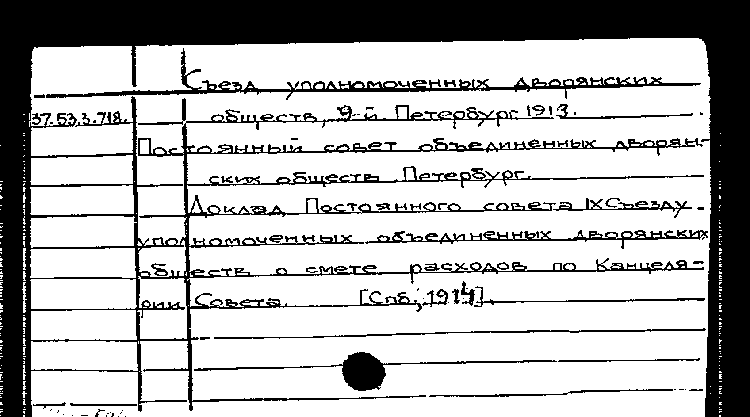 Съезд уполномоченных дворянских
37.53.3.718. обществ, 9-й. Петербург. 1913.
Постоянный совет объединенных дворян-
ских обществ. Петербург.
Доклад Постоянного совета IX Съезду
уполномоченных объединенных дворянских
обществ о смете расходов по Канцеля-
рии Совета. [Спб., 1914].